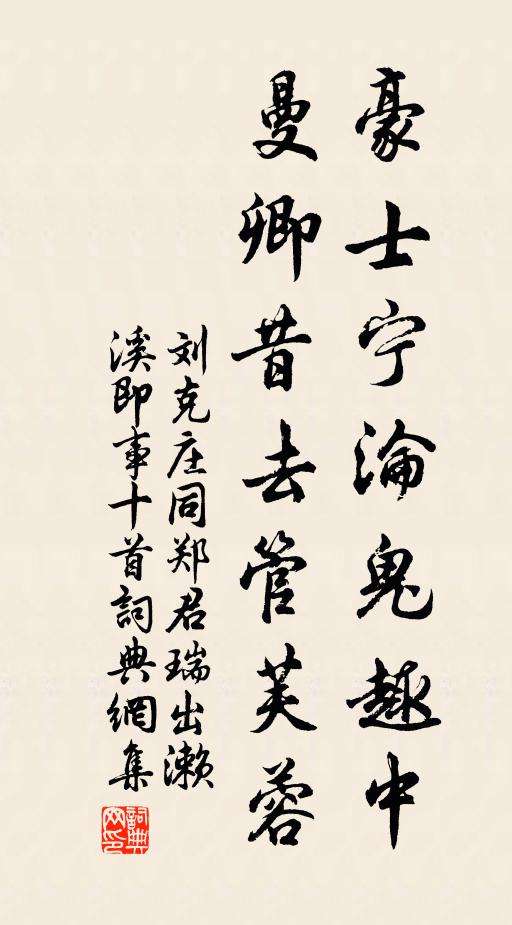 豪士宁淪鬼趣中
曼卿昔去管芙蓉
刘克庄同郑君瑞出濑
溪即事十首詞典網集
詞典
网印